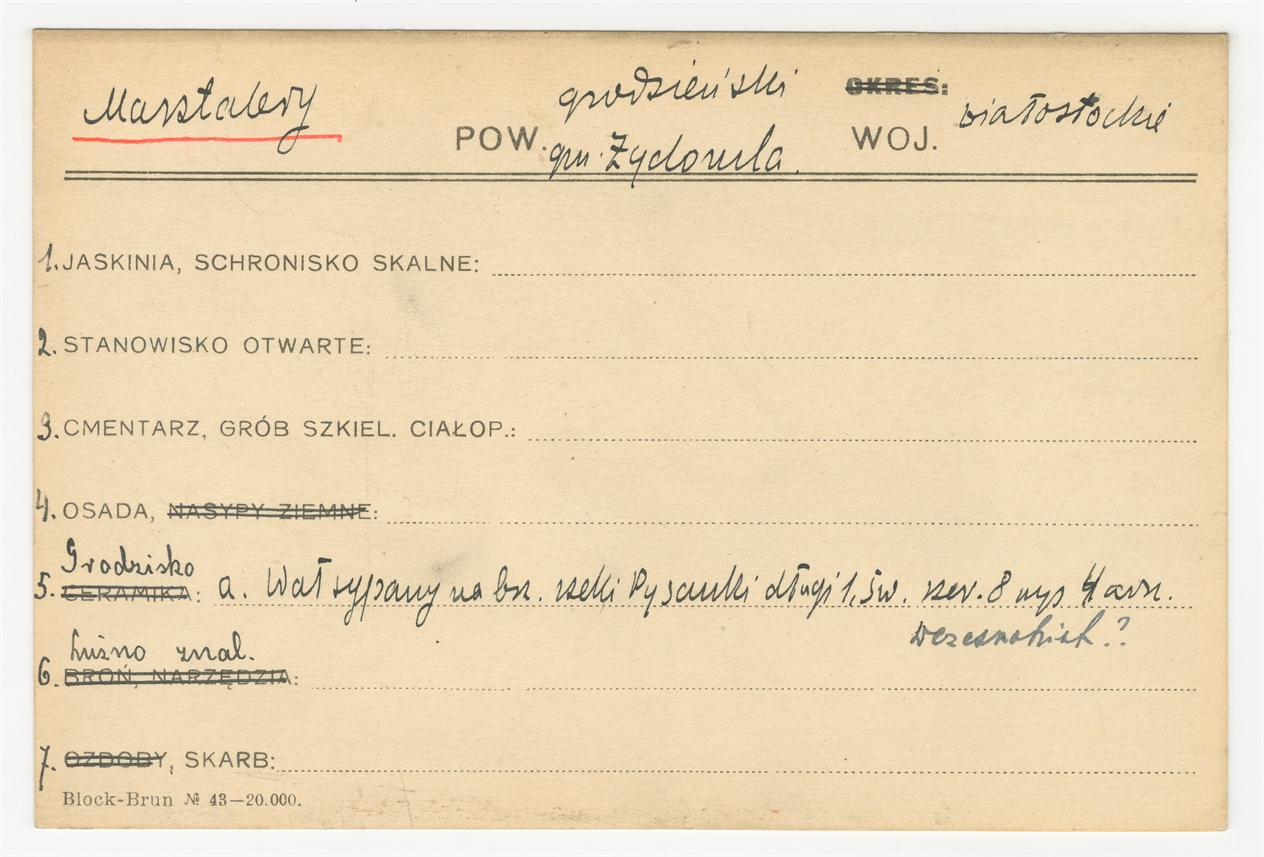 Marsztalery grodzieński OKRES: białostockie
POW. gm. Żydomla. WOJ.
1. JASKINIA, SCHRONISKO SKALNE:
2. STANOWISKO OTWARTE:
3. CMENTARZ, GRÓB SZKIEL. CIAŁOP.:
4. OSADA, NASYPY ZIEMNE:
Grodzisko
5. CERAMIKA: a. Wał sypany na brz. rzeki Pysanki długi szer. 8 wys 4 arsz.
wczesnohist.??
Luźno znal.
6. BROŃ, NARZĘDZIA:
7. OZDOBY, SKARB:
Block-Brun № 43—20.000.